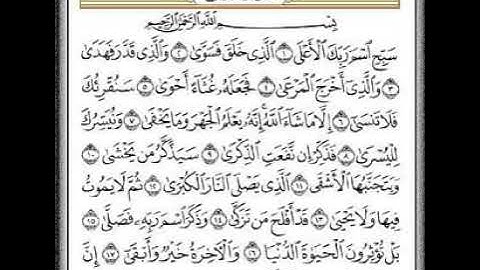 بِسْمِ اللَّهِ الرَّحْمَٰنِ الرَّحِيمِ
سَبِّحِ اسْمَ رَبِّكَ الْأَعْلَى ١ الَّذِي خَلَقَ فَسَوَّىٰ ٢ وَالَّذِي قَدَّرَ فَهَدَىٰ
٣ وَالَّذِي أَخْرَجَ الْمَرْعَىٰ ٤ فَجَعَلَهُ غُثَاءً أَحْوَىٰ ٥ سَنُقْرِئُكَ
فَلَا تَنسَىٰ ٦ إِلَّا مَا شَاءَ اللَّهُ إِنَّهُ يَعْلَمُ الْجَهْرَ وَمَا يَخْفَىٰ ٧ وَنُيَسِّرُكَ
لِلْيُسْرَىٰ ٨ فَذَكِّرْ إِن نَّفَعَتِ الذِّكْرَىٰ ٩ سَيَذَّكَّرُ مَن يَخْشَىٰ ١٠
وَيَتَجَنَّبُهَا الْأَشْقَى ١١ الَّذِي يَصْلَى النَّارَ الْكُبْرَىٰ ١٢ ثُمَّ لَا يَمُوتُ
فِيهَا وَلَا يَحْيَىٰ ١٣ قَدْ أَفْلَحَ مَن تَزَكَّىٰ ١٤ وَذَكَرَ اسْمَ رَبِّهِ فَصَلَّىٰ ١٥
بَلْ تُؤْثِرُونَ الْحَيَاةَ الدُّنْيَا ١٦ وَالْآخِرَةُ خَيْرٌ وَأَبْقَىٰ ١٧ إِنَّ